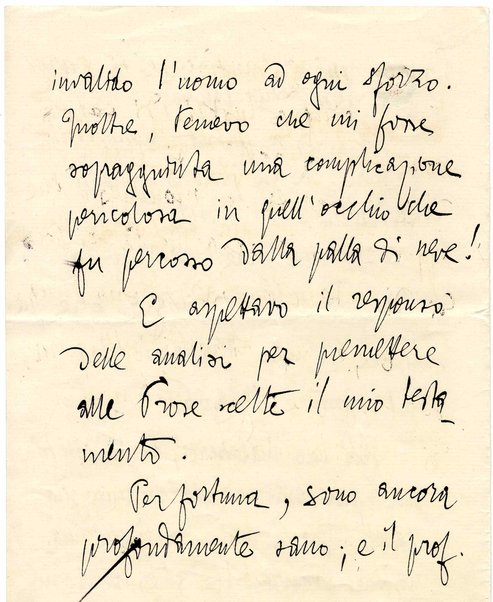 invalido l'uomo ad ogni sforzo.
Inoltre, temevo che mi fosse
sopraggiunta una complicazione
pericolosa in quell'occhio che
fu percosso dalla palla di neve!
E aspettavo il responso
delle analisi per premettere
alle Prose scelte il mio testa-
mento.
Per fortuna, sono ancora
profondamente sano; e il prof.